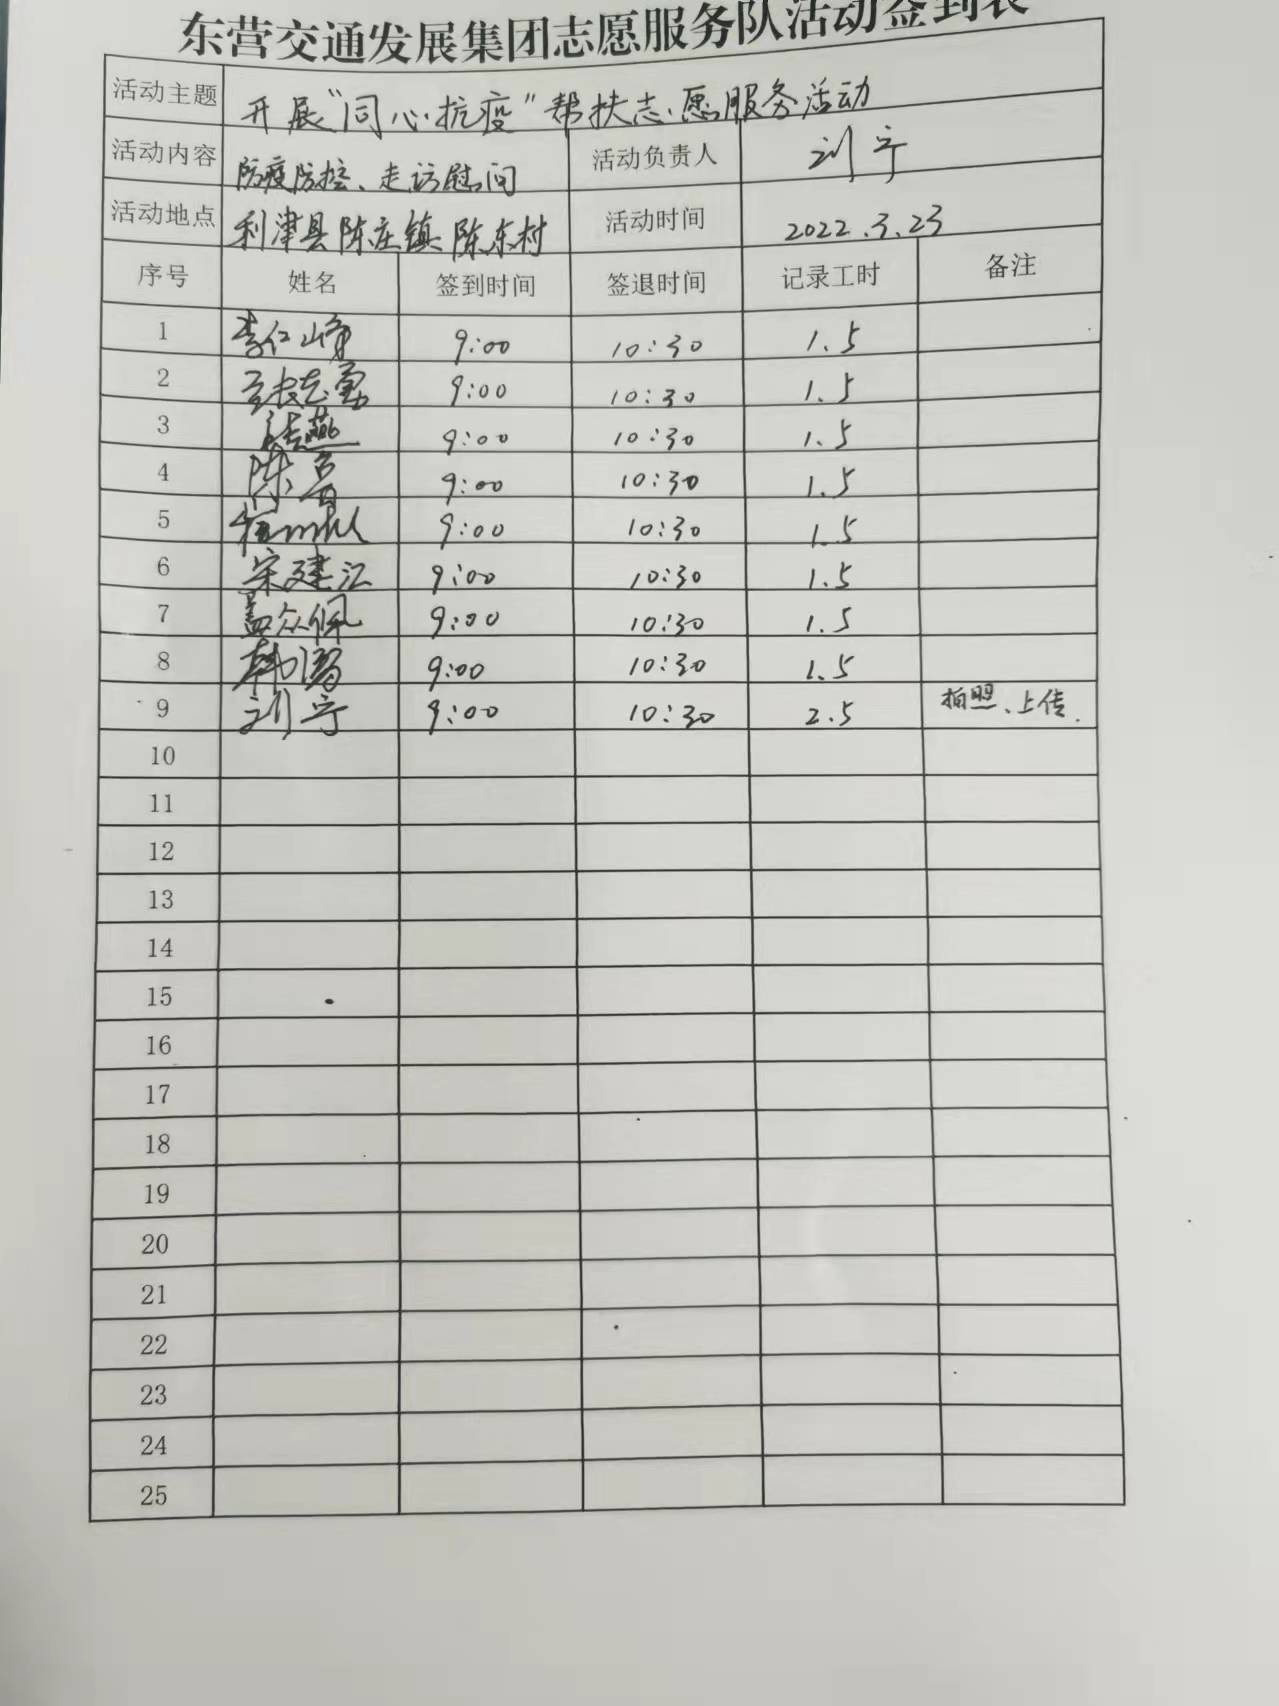 东营交通发展集团志愿服务队活动签到表
活动主题 开展“同心抗疫”帮扶志愿服务活动
活动内容 防疫防控、走访慰问 活动负责人 刘宁
活动地点 利津县陈庄镇陈东村 活动时间 2022.3.23
序号 姓名 签到时间 签退时间 记录工时 备注
1 李仁峥 9:00 10:30 1.5
2 9:00 10:30 1.5
3 张燕 9:00 10:30 1.5
4 陈 9:00 10:30 1.5
5 9:00 10:30 1.5
6 宋建江 9:00 10:30 1.5
7 盖众佩 9:00 10:30 1.5
8 韩 9:00 10:30 1.5
9 刘宁 9:00 10:30 2.5 拍照、上传.
10
11
12
13
14
15
16
17
18
19
20
21
22
23
24
25